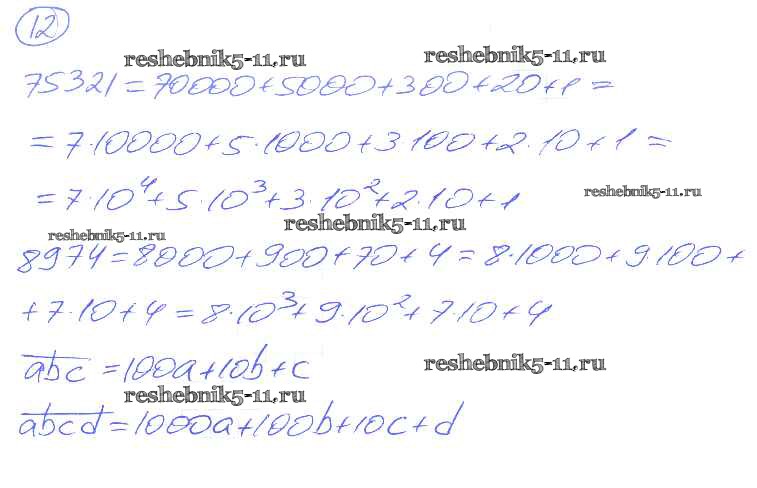 12
reshebnik5-11.ru reshebnik5-11.ru
75321=70000+5000+300+20+1=
=7·10000+5·1000+3 100+2·10+1=
=7·10⁴+5·10³+3·10²+2·10+1 reshebnik5-11.ru
reshebnik5-11.ru reshebnik5-11.ru
8974=8000+900+70+4=8·1000+9·100+
+7·10+4=8·10³+9·10²+7·10+4
a̅b̅c̅=100a+10b+c reshebnik5-11.ru
reshebnik5-11.ru
a̅b̅c̅d̅=1000a+100b+10c+d